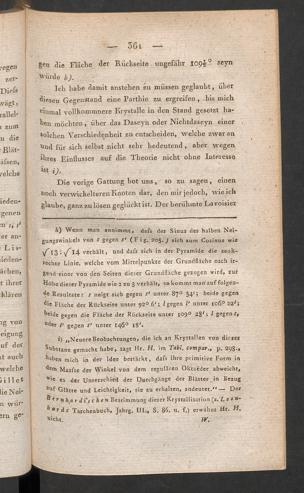 — 361 —
gen die Fläche der Rückseite ungefähr 109½° seyn
würde h).
Ich habe damit anstehen zu müssen geglaubt, über
diesen Gegenstand eine Parthie zu ergreifen, bis mich
einmal vollkommnere Krystalle in den Stand gesetzt ha-
ben möchten, über das Daseyn oder Nichtdaseyn einer
solchen Verschiedenheit zu entscheiden, welche zwar an
und für sich selbst nicht sehr bedeutend, aber wegen
ihres Einflusses auf die Theorie nicht ohne Interesse
ist i).
Die vorige Gattung bot uns, so zu sagen, einen
noch verwickelteren Knoten dar, den mir jedoch, wie ich
glaube, ganz zu lösen geglückt ist. Der berühmte Lavoisier
h) Wenn man annimmt, dass der Sinus des halben Nei-
gungswinkels von s gegen s' (Fig. 205.) sich zum Cosinus wie
√13 : √14 verhält, und dass sich in der Pyramide die senk-
rechte Linie, welche vom Mittelpunkte der Grundfläche nach ir-
gend einer von den Seiten dieser Grundfläche gezogen wird, zur
Höhe dieser Pyramide wie 2 zu 3 verhält, so kommt man auf folgen-
de Resultate: r neigt sich gegen r' unter 87° 54'; beide gegen
die Fläche der Rückseite unter 92° 6'; l gegen l' unter 106° 22';
beide gegen die Fläche der Rückseite unter 109° 28'; l gegen s,
oder l' gegen s' unter 146° 18'.
i) „Neuere Beobachtungen, die ich an Krystallen von dieser
Substanz gemacht habe, sagt Hr. H. im Tabl. compar., p. 298.,
haben mich in der Idee bestärkt, dass ihre primitive Form in
dem Maasse der Winkel von dem regulären Oktaëder abweicht,
wie es der Unterschied der Durchgänge der Blätter in Bezug
auf Glätte und Leichtigkeit, sie zu erhalten, andeutet." — Der
Bernhardi'schen Bestimmung dieser Krystallisation (s. Leon-
hards Taschenbuch, Jahrg. III., S. 86. u. f.) erwähnt Hr. H.
nicht.
W.